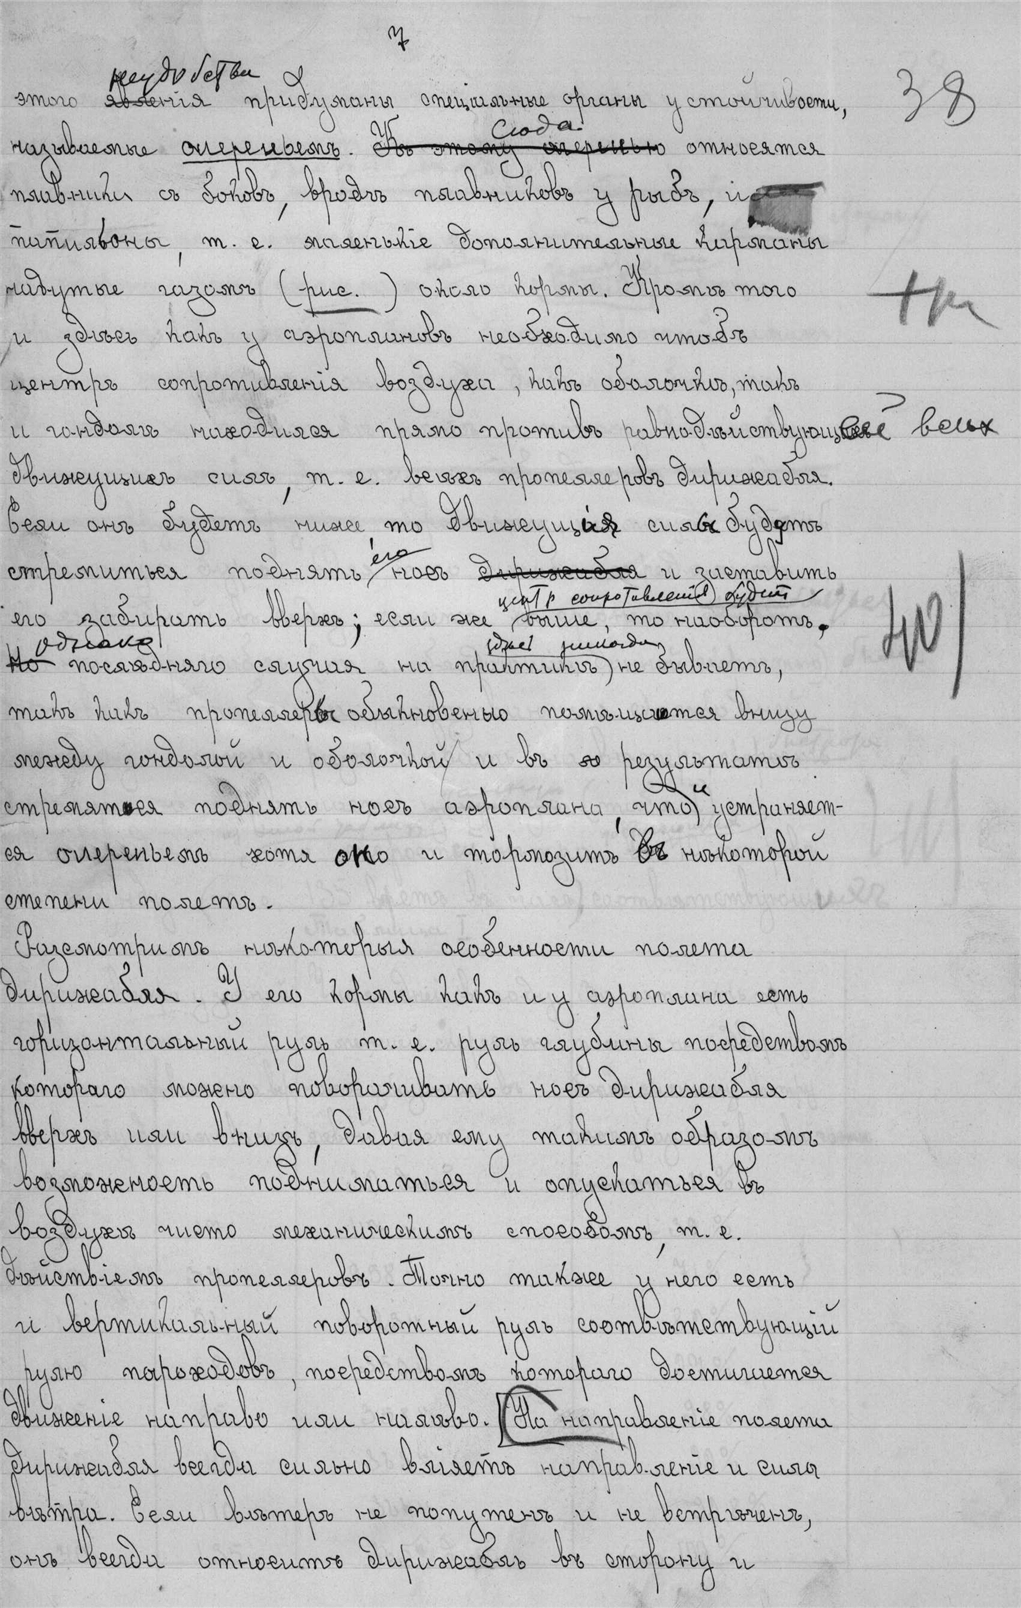 7
38
неудобства
этого явленія придуманы спеціальные органы устойчивости,
называемые опереньемъ. Къ этому оперенью относятся
Сюда
плавники съ боковъ, вродѣ плавниковъ у рыбъ, и
папильоны, т. е. маленькіе дополнительные карманы
надутые газомъ (рис. ) около кормы. Кромѣ того
и здѣсь какъ у аэроплановъ необходимо чтобъ
центръ сопротивленія воздуха, какъ оболочкѣ, такъ
и гондолѣ находился прямо противъ равнодѣйствующей всѣхъ
движущихъ силъ, т. е. всѣхъ пропеллеровъ дирижабля.
Если онъ будетъ ниже, то движущія силы будутъ
стремиться поднять его носъ дирижабля и заставить
центръ сопротивленія будетъ
его забирать вверхъ; если же выше, то наоборотъ.
однако
Но послѣдняго случая на практикѣ не бываетъ,
такъ какъ пропеллеры обыкновенно помѣщаются внизу
между гондолой и оболочкой и въ результатѣ
стремятся поднять носъ аэроплана, что и устраняет-
ся опереньемъ хотя оно и тормозитъ въ нѣкоторой
степени полетъ.
Разсмотримъ нѣкоторыя особенности полета
дирижабля. У его кормы какъ и у аэроплана есть
горизонтальный руль т. е. руль глубины посредствомъ
котораго можно поворачивать носъ дирижабля
вверхъ или внизъ, давая ему такимъ образомъ
возможность подниматься и опускаться въ
воздухѣ чисто механическимъ способомъ, т. е.
дѣйствіемъ пропеллеровъ. Точно также у него есть
и вертикальный поворотный руль соотвѣтствующій
рулю пароходовъ, посредствомъ котораго достигается
движеніе направо или налѣво. [На направленіе полета
дирижабля всегда сильно вліяетъ направленіе и сила
вѣтра. Если вѣтеръ не попутенъ и не встрѣченъ,
онъ всегда относитъ дирижабль въ сторону и